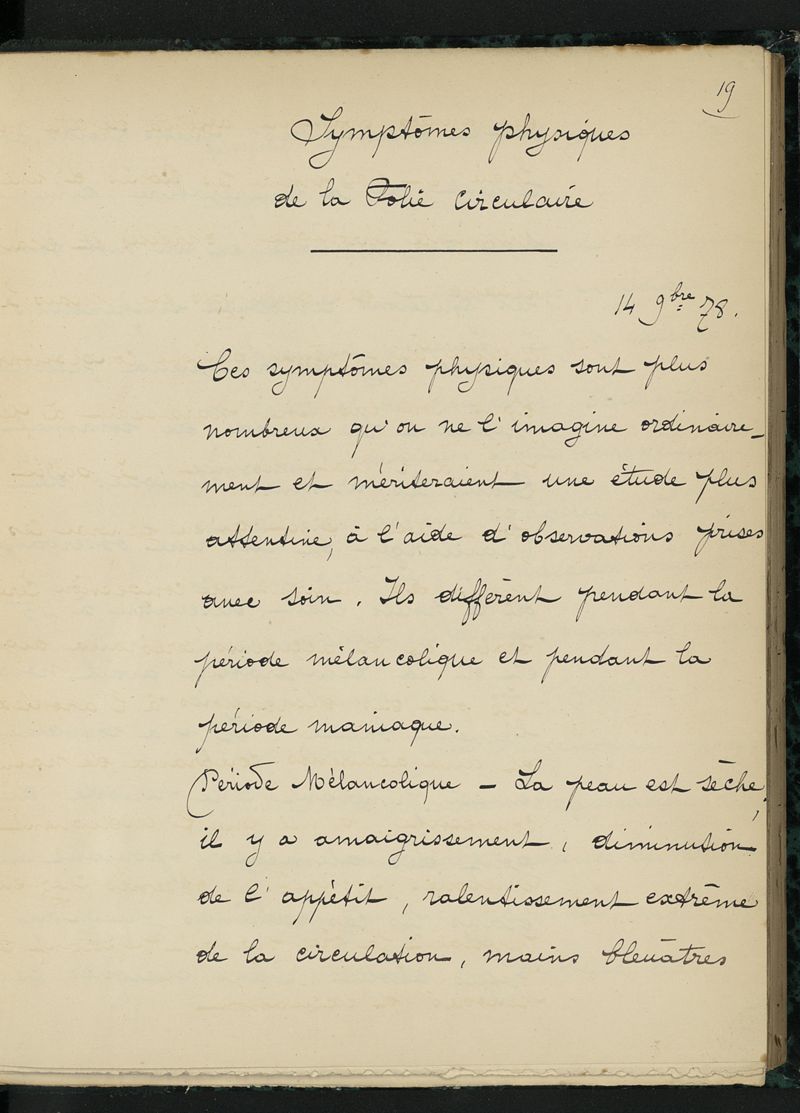 19
Symptômes physiques
de la Folie circulaire
14 9bre 78.
Ces symptômes physiques sont plus
nombreux qu'on ne l'imagine ordinaire-
ment et mériteraient une étude plus
attentive, à l'aide d'observations prises
avec soin. Ils diffèrent pendant la
période mélancolique et pendant la
période maniaque.
Période Mélancolique - La peau est sèche,
il y a amaigrissement, diminution
de l'appétit, ralentissement extrême
de la circulation, mains bleuâtres